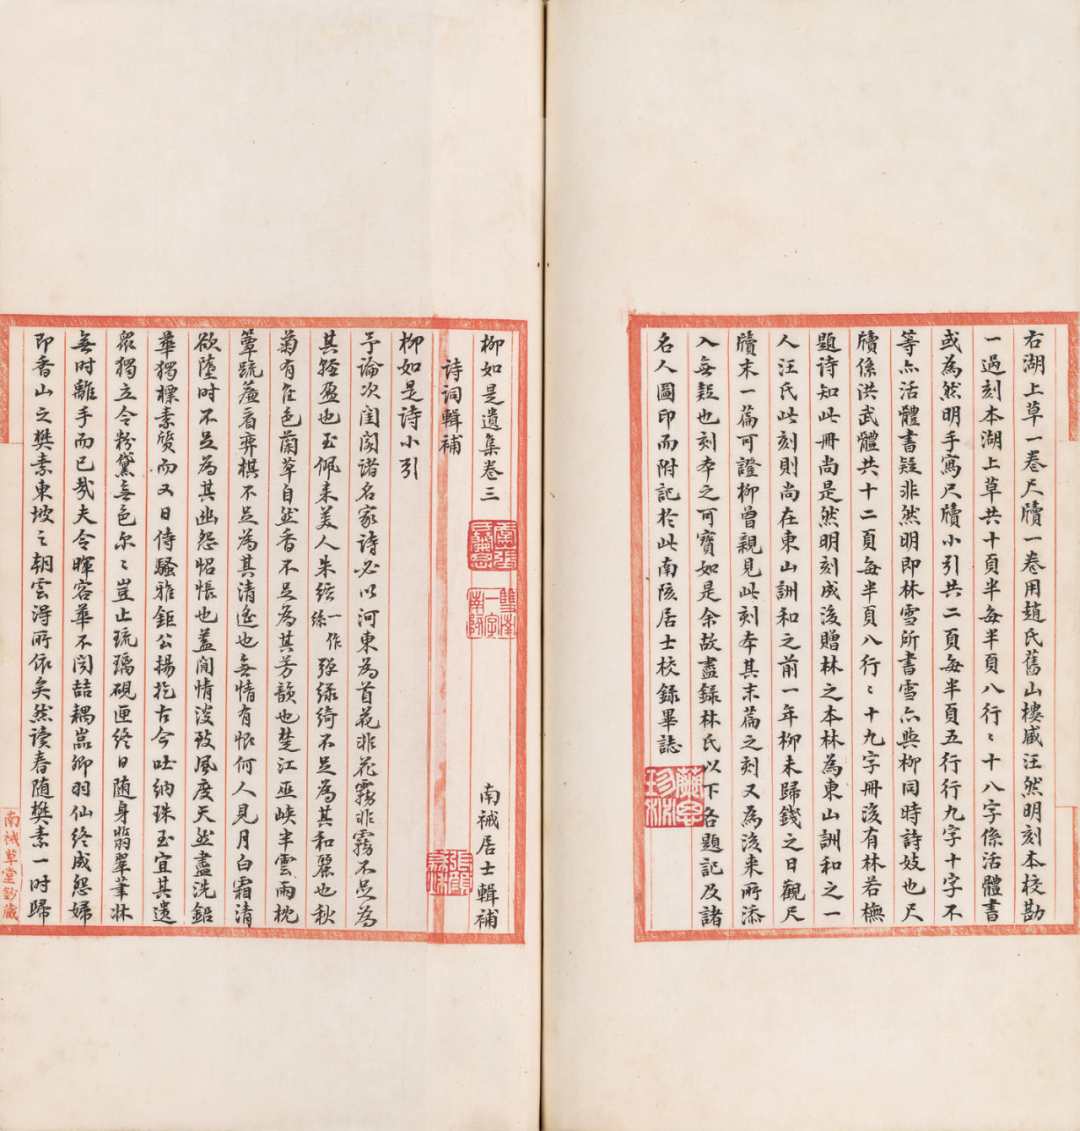 右湖上草一卷尺牘一卷用趙氏舊山樓臧汪然明刻本校勘
一過刻本湖上草共十頁半每半頁八行〻十八字係活體書
或為然明手寫尺牘小引共二頁每半頁五行行九字十字不
等亦活體書疑非然明即林雪所書雪亦與柳同時詩妓也尺
牘係洪武體共十二頁每半頁八行〻十九字冊後有林若橅
題詩知此冊尚是然明刻成後贈林之本林為東山詶和之一
人汪氏此刻則尚在東山詶和之前一年柳未歸錢之日觀尺
牘末一篇可證柳曾親見此刻本其末篇之刻又為後来所添
入無疑也刻本之可寶如是余故盡録林氏以下各題記及諸
名人圖印而附記於此南陔居士校録畢誌
柳如是遺集卷三
南裓居士輯補
詩詞輯補
柳如是詩小引
予論次閨閣諸名家詩必以河東為首花非花霧非霧不足為
其輕盈也玉佩来美人朱絃一作絲彈綠綺不足為其和麗也秋
菊有佳色蘭草自然香不足為其芳韻也楚江巫峽半雲雨枕
簟疏簾看弈棋不足為其清遙也無情有恨何人見月白霜清
欲墮时不足為其幽怨怊悵也蓋閒情淡致風度天然盡洗鉛
華獨標素質而又日侍騷雅鉅公揚扢古今吐納珠玉宜其遺
眾獨立令粉黛無色尔〻豈止琉璃硯匣終日随身翡翠筆牀
無时離手而已㢤夫令暉容華不関喆耦嵓卿羽仙终成怨婦
即香山之樊素東坡之朝雲淂所依矣然读春随樊素一时歸
南裓草堂鈔藏